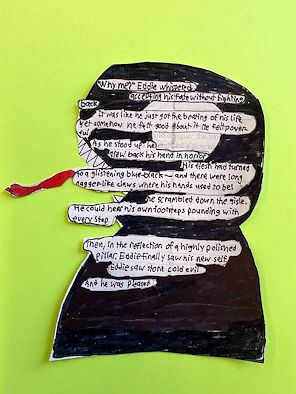 "Why me?" Eddie whispered
accepting his fate without fighting
back.
It was like he just got the beating of his life
Yet somehow he felt good about it. He felt power
ful
As he stood up he
drew back his hand in horror
His flesh had turned
to a glistening blue-black — and there were long
dagger-like claws where his hands used to be!
he scrambled down the aisle.
He could hear his own footsteps pounding with
every step
Then, in the reflection of a highly polished
pillar, Eddie finally saw his new self
Eddie saw stone cold evil
And he was pleased